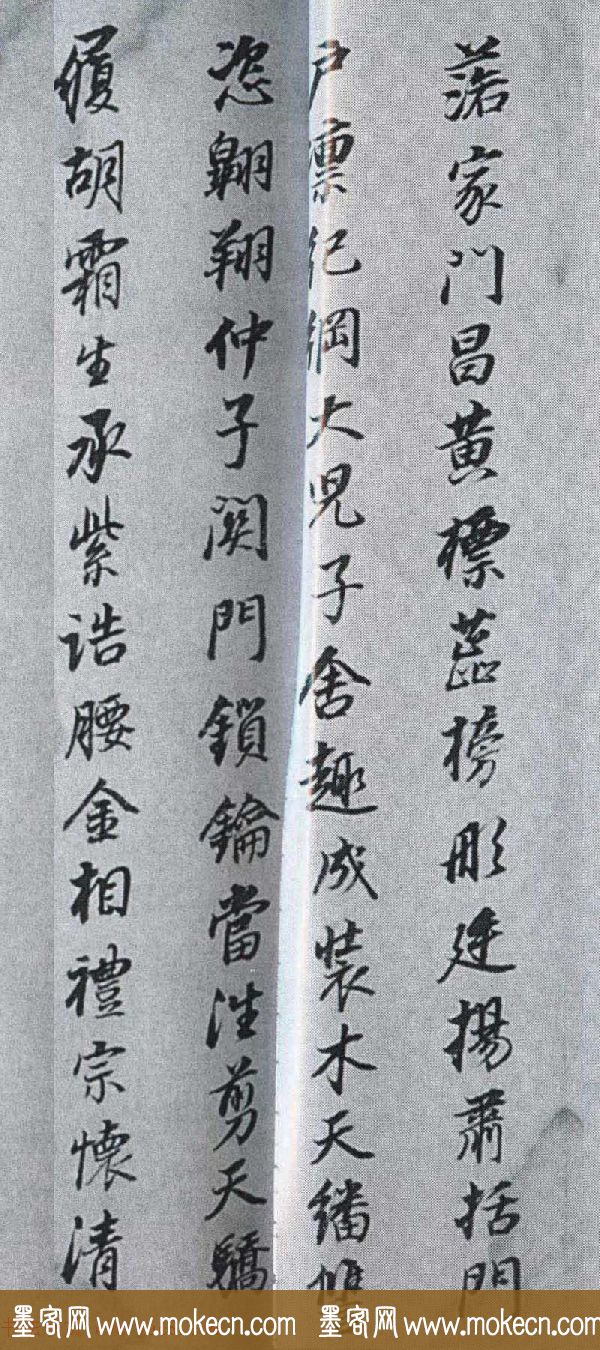 蕩家門昌黃標蕊榜彤廷揚肅括門
戶凛紀綱大兒子舍趣成裝木天繙
恣翺翔仲子関門鎖鑰當洼剪天驕
履胡霜生承紫誥腰金相禮宗懷清
墨客网 www.mokecn.com 墨客网 www.mokecn.com